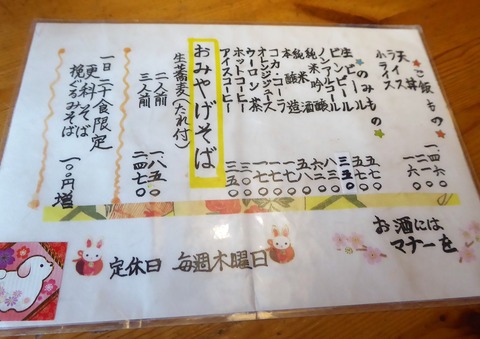 ご飯もの
天丼
ライス
小ライス 一六〇
のみもの
生ビール
ビンビール
ノンアルコール 三五〇
純米吟醸
純米酒
本醸造
オレンジジュース
コカ・コーラ
ウーロン茶
ホットコーヒー
アイスコーヒー 三五〇
おみやげそば
生蕎麦(たれ付)
二人前 一.八五〇
三人前 二.四七〇
一日二十食限定
更科そば
挽ぐるみそば 一〇〇円増
お酒には
マナーを
定休日 毎週木曜日